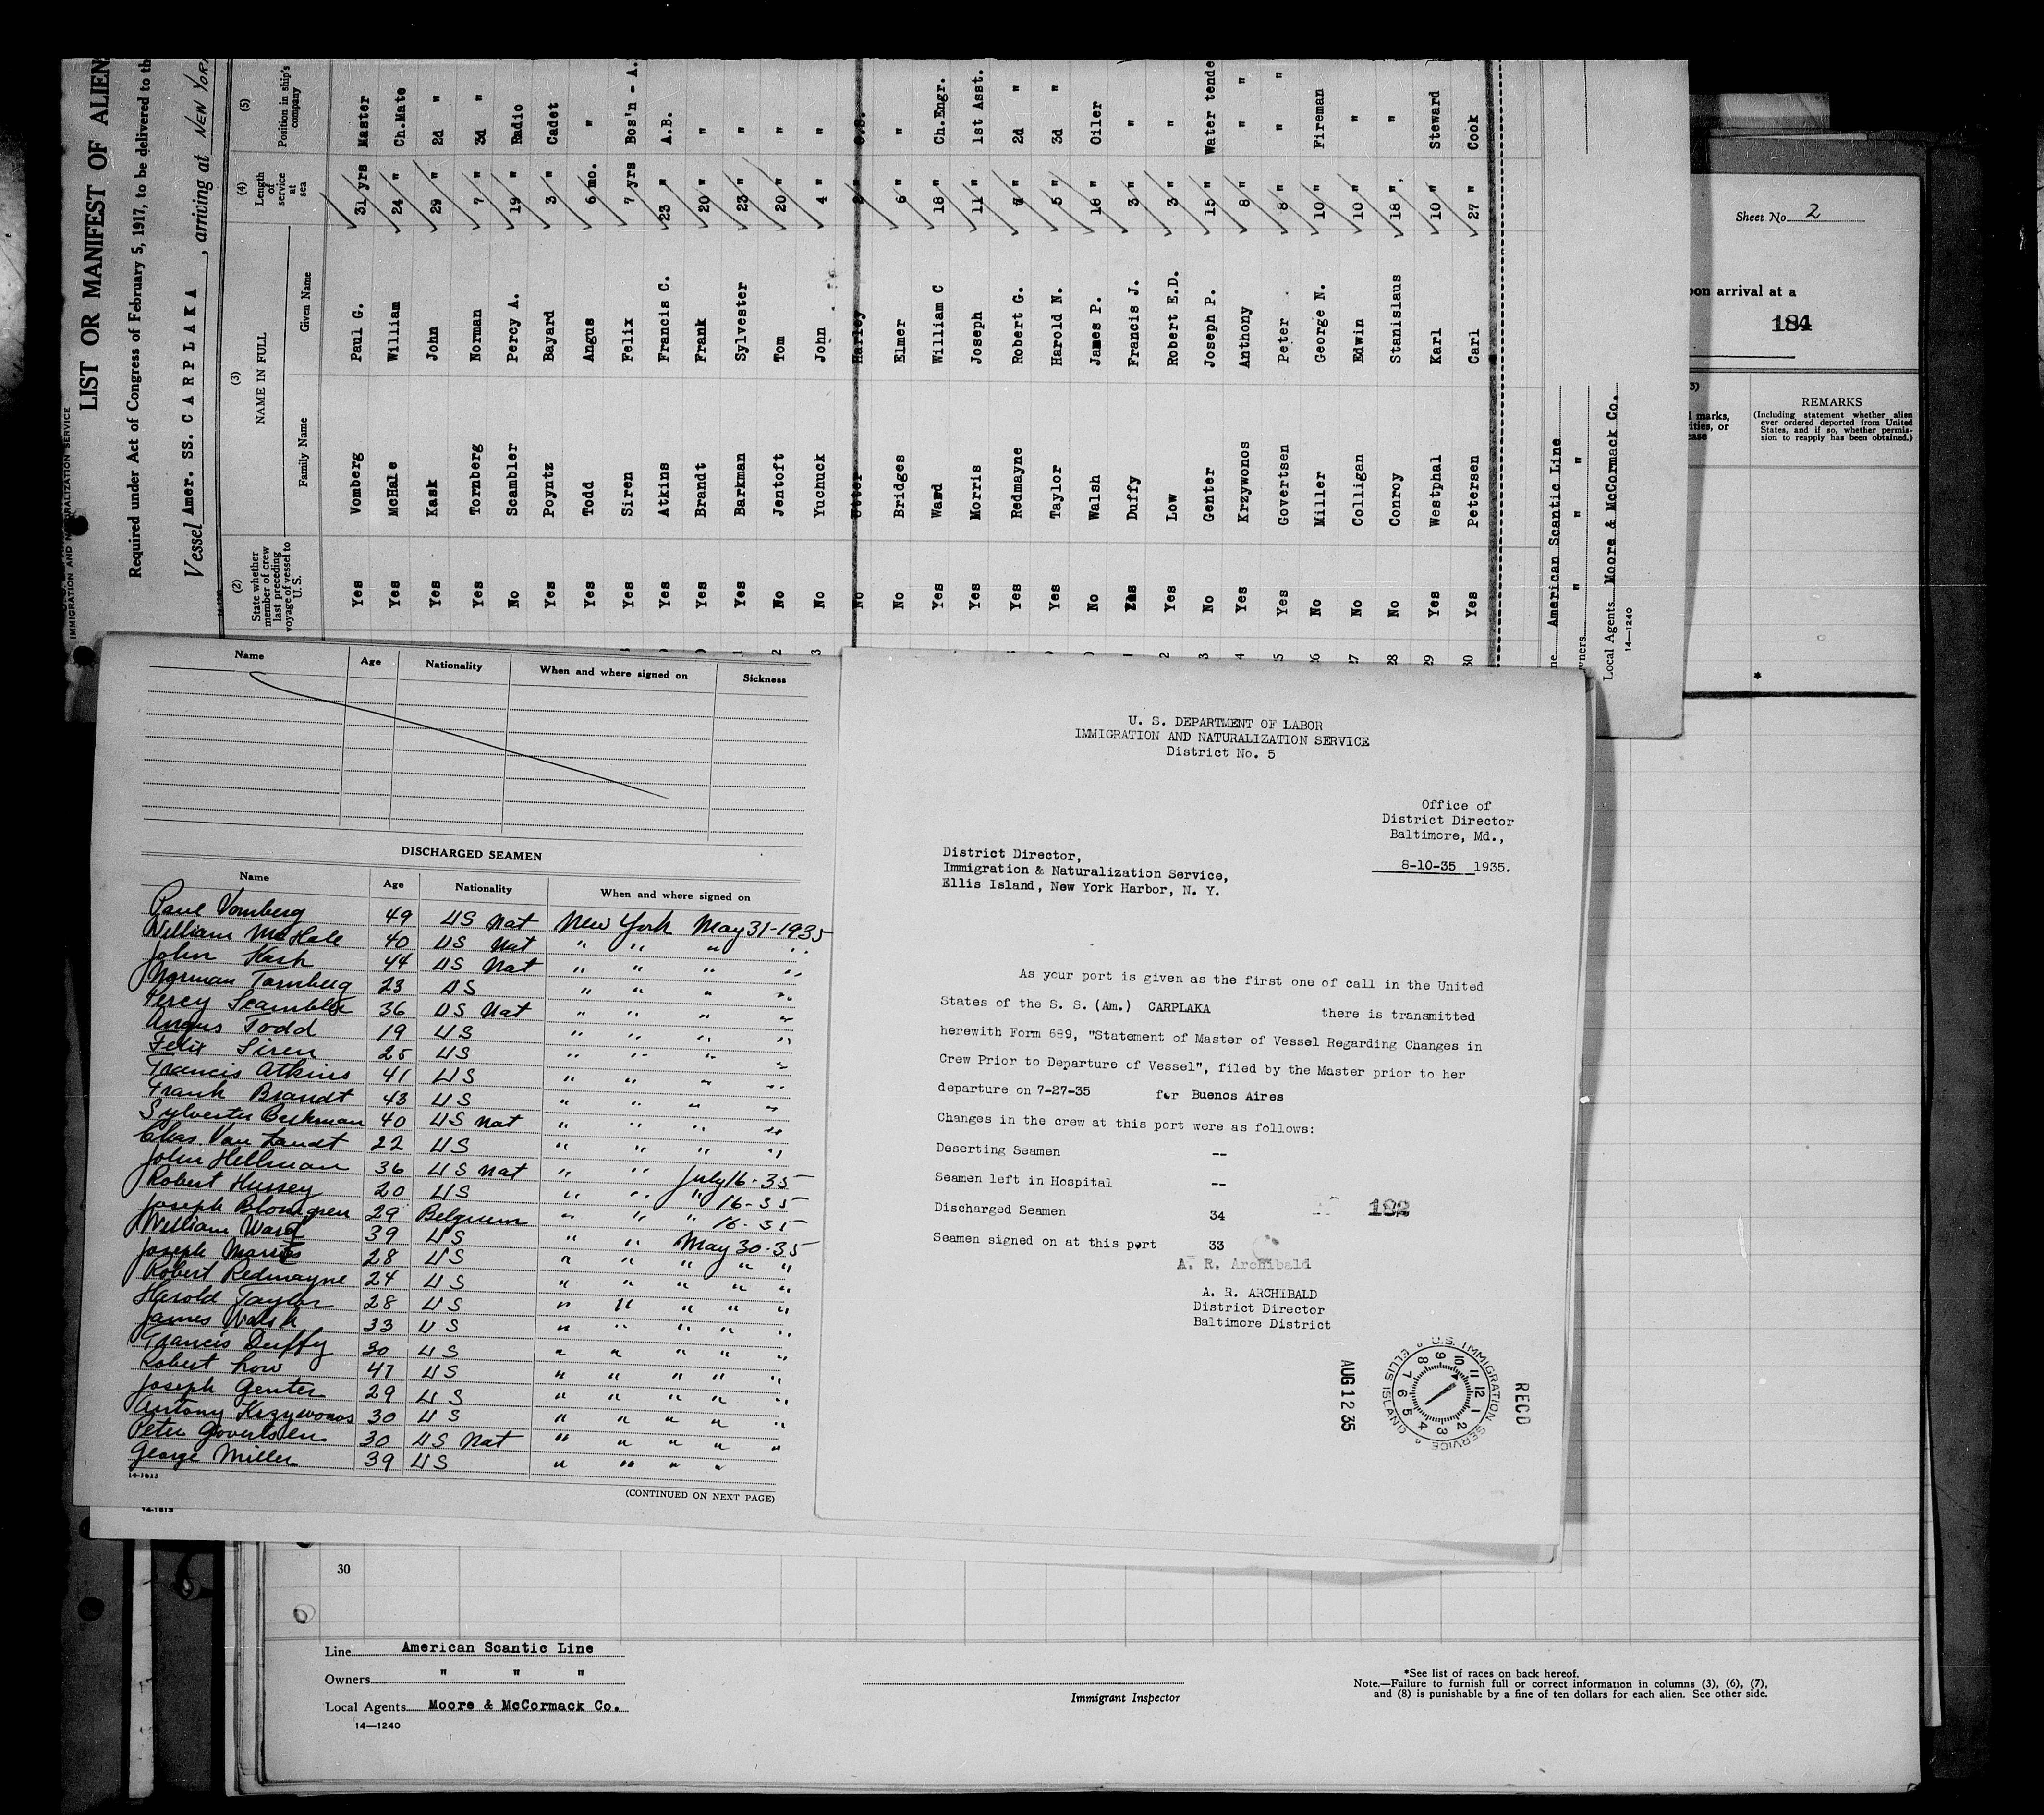 IMMIGRATION AND NATURALIZATION SERVICE
LIST OR MANIFEST OF ALIEN
Required under Act of Congress of February 5, 1917, to be delivered to th
Vessel Amer. SS. CARPLAKA, arriving at NEW YORK
14-1240
(2) (3) (4) (5)
State whether member of crew last preceding voyage of vessel to U.S. NAME IN FULL Length of service at sea Position in ship's company
Family Name Given Name
Yes Vomberg Paul G. 31 yrs Master
Yes McHale William 24 " Ch.Mate
Yes Kask John 29 " 2d "
Yes Tornberg Norman 7 " 3d "
No Scambler Percy A. 19 " Radio
Yes Poyntz Bayard 3 " Cadet
Yes Todd Angus 6 mo. "
Yes Siren Felix 7 yrs Bos'n - A.
Yes Atkins Francis C. 23 " A.B.
Yes Brandt Frank 20 " "
1 Yes Barkman Sylvester 23 " "
2 No Jentoft Tom 20 " "
3 No Yuchuck John 4 " "
No Utter Harley 2 " O.S.
No Bridges Elmer 6 " "
Yes Ward William C 18 " Ch.Engr.
Yes Morris Joseph 11 " 1st Asst.
Yes Redmayne Robert G. 7 " 2d "
Yes Taylor Harold N. 5 " 3d "
No Walsh James P. 18 " Oiler
1 Duffy Francis J. 3 " "
2 Yes Low Robert E.D. 3 " "
3 No Genter Joseph P. 15 " Water tende
4 Yes Krzywonos Anthony 8 " " "
5 Yes Govertsen Peter 8 " " "
26 No Miller George N. 10 " Fireman
27 No Colligan Edwin 10 " "
28 No Conroy Stanislaus 18 " "
29 Yes Westphal Karl 10 " Steward
30 Yes Petersen Carl 27 " Cook
ne American Scantic Line
wners " " "
Local Agents Moore & McCormack Co.
14—1240
Sheet No. 2
pon arrival at a
184
REMARKS
(Including statement whether alien
ever ordered deported from United
States, and if so, whether permis-
sion to reapply has been obtained.)
3)
l marks,
rities, or
ease
*
Name Age Nationality When and where signed on Sickness
DISCHARGED SEAMEN
Name Age Nationality When and where signed on
Paul Vomberg 49 US Nat New York May 31-1935
William McHale 40 US Nat " " " "
John Kask 44 US Nat " " " "
Norman Tornberg 23 US " " " "
Percy Scambler 36 US Nat " " " "
Angus Todd 19 US " " " "
Felix Siren 25 US " " " "
Francis Atkins 41 US " " " "
Frank Brandt 43 US " " " "
Sylvester Berkman 40 US Nat " " " "
Chas. Van Zandt 22 US " " " "
John Hellman 36 US Nat " " July 16-35
Robert Hussey 20 US " " " 16-35
Joseph Blomgren 29 Belgium " " " 16-35
William Ward 39 US " " May 30-35
Joseph Morris 28 US " " " " "
Robert Redmayne 24 US " " " " "
Harold Taylor 28 US " " " " "
James Walsh 33 US " " " " "
Francis Duffy 30 US " " " " "
Robert Low 47 US " " " " "
Joseph Genter 29 US " " " " "
Antony Krzywonos 30 US " " " " "
Peter Govertsen 30 US Nat " " " " "
George Miller 39 US " " " "
14-1613
(CONTINUED ON NEXT PAGE)
14-1613
U. S. DEPARTMENT OF LABOR
IMMIGRATION AND NATURALIZATION SERVICE
District No. 5
Office of
District Director
Baltimore, Md.,
8-10-35 1935.
District Director,
Immigration & Naturalization Service,
Ellis Island, New York Harbor, N. Y.
As your port is given as the first one of call in the United
States of the S. S. (Am.) CARPLAKA there is transmitted
herewith Form 689, "Statement of Master of Vessel Regarding Changes in
Crew Prior to Departure of Vessel", filed by the Master prior to her
departure on 7-27-35 for Buenos Aires
Changes in the crew at this port were as follows:
Deserting Seamen --
Seamen left in Hospital --
Discharged Seamen 34
182
Seamen signed on at this port 33
A. R. Archibald
A. R. ARCHIBALD
District Director
Baltimore District
AUG 12 35
U.S. IMMIGRATION SERVICE ELLIS ISLAND
1 2 3 4 5 6 7 8 9 10 11 12
RECD
30
Line American Scantic Line
Owners " " "
Local Agents Moore & McCormack Co.
14—1240
Immigrant Inspector
*See list of races on back hereof.
Note.—Failure to furnish full or correct information in columns (3), (6), (7),
and (8) is punishable by a fine of ten dollars for each alien. See other side.